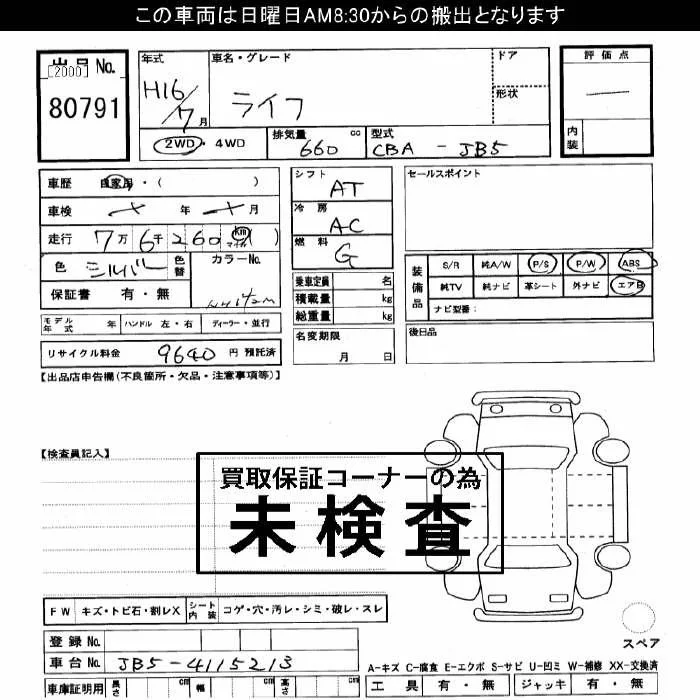 この車両は日曜日AM8:30からの搬出となります
出品No. [2000]
80791
年式 H16/7月
車名・グレード ライフ
ドア
形状
2WD・4WD
排気量 660 cc
型式 CBA-JB5
評価点 —
内装
車歴 自家用・( )
車検 年 月
走行 7万6千260 km マイル ( )
色 シルバー 色替 カラーNo.
保証書 有・無
モデル年式 年 ハンドル 左・右 ディーラー・並行
リサイクル料金 9640 円 預託済
シフト AT
冷房 AC
燃料 G
乗車定員 名
積載量 kg
総重量 kg
名変期限 月 日
セールスポイント
装備品 S/R 純A/W P/S P/W ABS
純TV 純ナビ 革シート 外ナビ エアB
ナビ型番:
後日品
【出品店申告欄(不良箇所・欠品・注意事項等)】
【検査員記入】
買取保証コーナーの為
未検査
FW キズ・トビ石・割レX シート内装 コゲ・穴・汚レ・シミ・破レ・スレ
登録No.
車台No. JB5-4115213
車庫証明用 長さ cm 幅 cm 高さ cm
スペア
A-キズ C-腐食 E-エクボ S-サビ U-凹ミ W-補修 XX-交換済
工具 有・無 ジャッキ 有・無